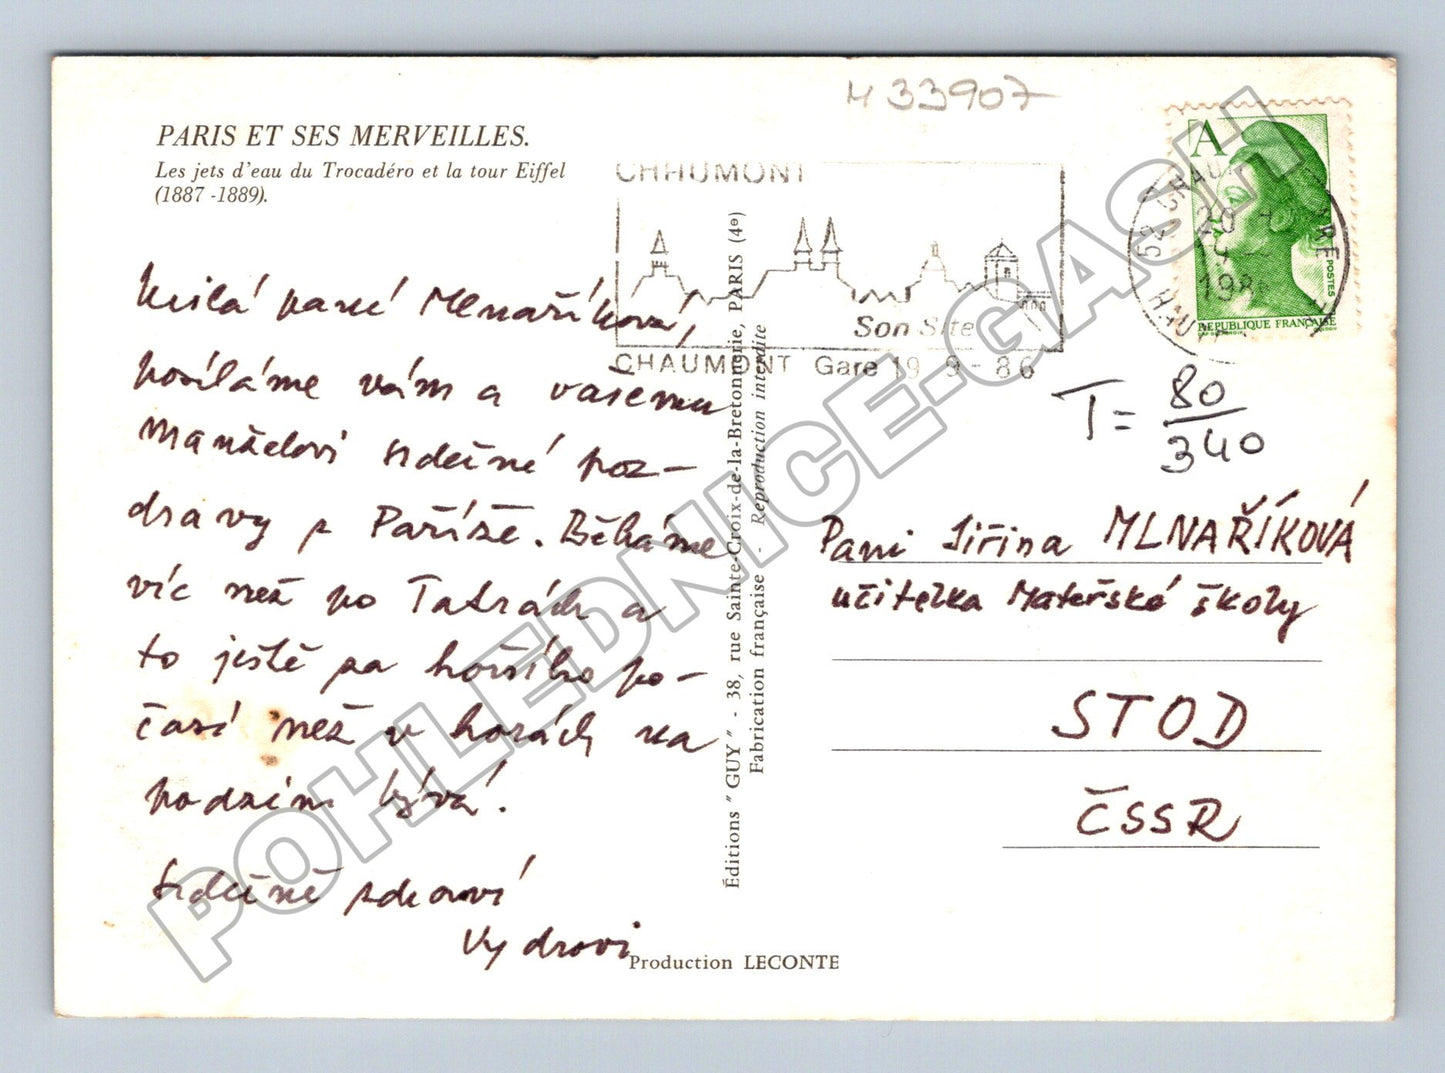 H 33907
PARIS ET SES MERVEILLES.
Les jets d'eau du Trocadéro et la tour Eiffel
(1887 -1889).
CHAUMONT
Son Site
CHAUMONT Gare 19 9 - 86
A
REPUBLIQUE FRANÇAISE
POSTES
52 CHAU
HAUTE
20
9
198
T = 80
340
Milá paní Mlnaříková,
posíláme vám a vašemu
manželovi srdečné poz-
dravy z Paříže. Běháme
víc než po Tatrách a
to ještě za horšího po-
časí než v horách na
podzim bývá.
Srdečně zdraví
Vydrovi
Éditions " GUY " - 38, rue Sainte-Croix-de-la-Bretonnerie, PARIS (4e)
Fabrication française - Reproduction interdite
Production LECONTE
Paní Jiřina MLNAŘÍKOVÁ
učitelka Mateřské školy
STOD
ČSSR
POHLEDNICE-GASH